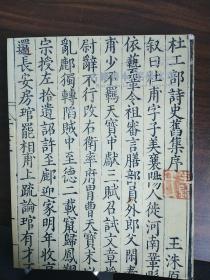 杜工部詩史舊集序
王洙原
叙曰杜甫字子美襄陽人徙河南鞏縣
依藝奉天令祖審言膳部員外郎父閑奉
甫少不羈天寶中獻三賦召試文章
尉辭不行改右衛率府胄曹天寶末
亂鄜獨轉陷賊中至德二載竄歸鳳翔
宗授左拾遺詔許至鄜迎家明年收京
還長安房琯罷相甫上疏論琯有才